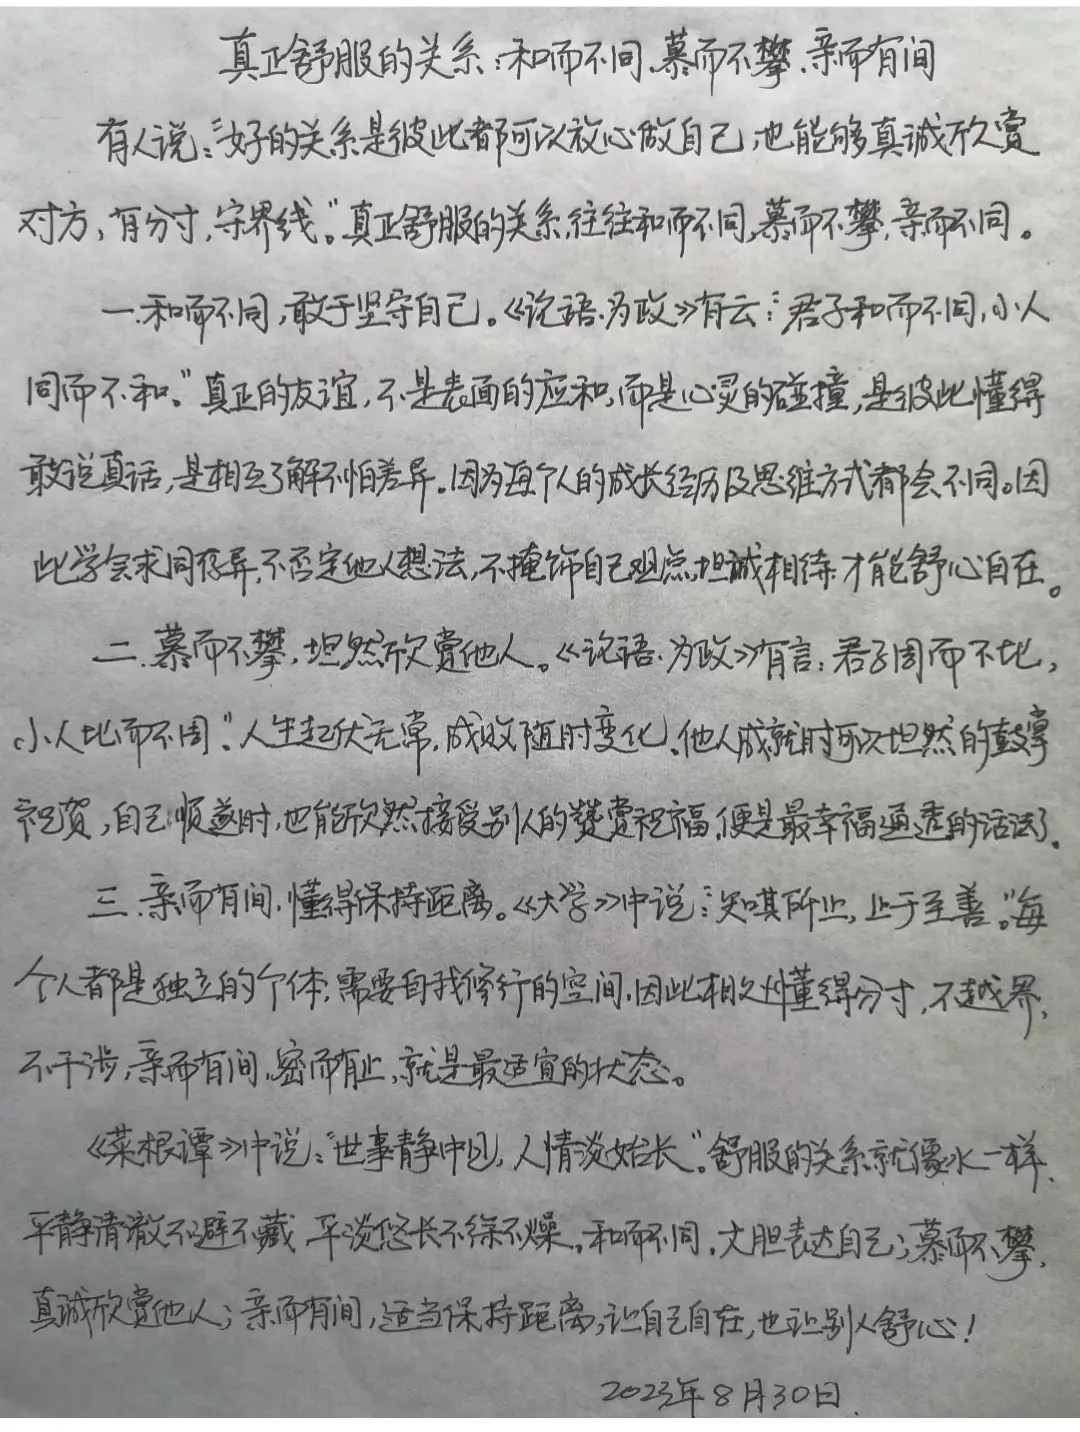 真正舒服的关系:和而不同、慕而不攀、亲而有间
有人说:“好的关系是彼此都可以放心做自己,也能够真诚欣赏
对方,有分寸,守界线。”真正舒服的关系,往往和而不同,慕而不攀,亲而不同。
一.和而不同,敢于坚守自己。《论语.为政》有云:“君子和而不同,小人
同而不和。”真正的友谊,不是表面的应和,而是心灵的碰撞,是彼此懂得
敢说真话,是相互了解不怕差异。因为每个人的成长经历及思维方式都会不同。因
此学会求同存异,不否定他人想法,不掩饰自己观点,坦诚相待,才能舒心自在。
二.慕而不攀,坦然欣赏他人。《论语.为政》有言:君子周而不比,
小人比而不周”.人生起伏无常,成败随时变化.他人成就时可以坦然的鼓掌
祝贺,自己顺遂时,也能欣然接受别人的赞赏祝福,便是最幸福通透的活法了.
三.亲而有间,懂得保持距离。《大学》中说:“知其所止,止于至善。”每
个人都是独立的个体,需要自我修行的空间,因此相处懂得分寸,不越界,
不干涉,亲而有间,密而有止,就是最适宜的状态。
《菜根谭》中说:“世事静中见,人情淡始长”.舒服的关系就像水一样、
平静清澈不避不藏,平淡悠长不徐不燥.和而不同,大胆表达自己;慕而不攀,
真诚欣赏他人;亲而有间,适当保持距离,让自己自在,也让别人舒心!
2023年8月30日.